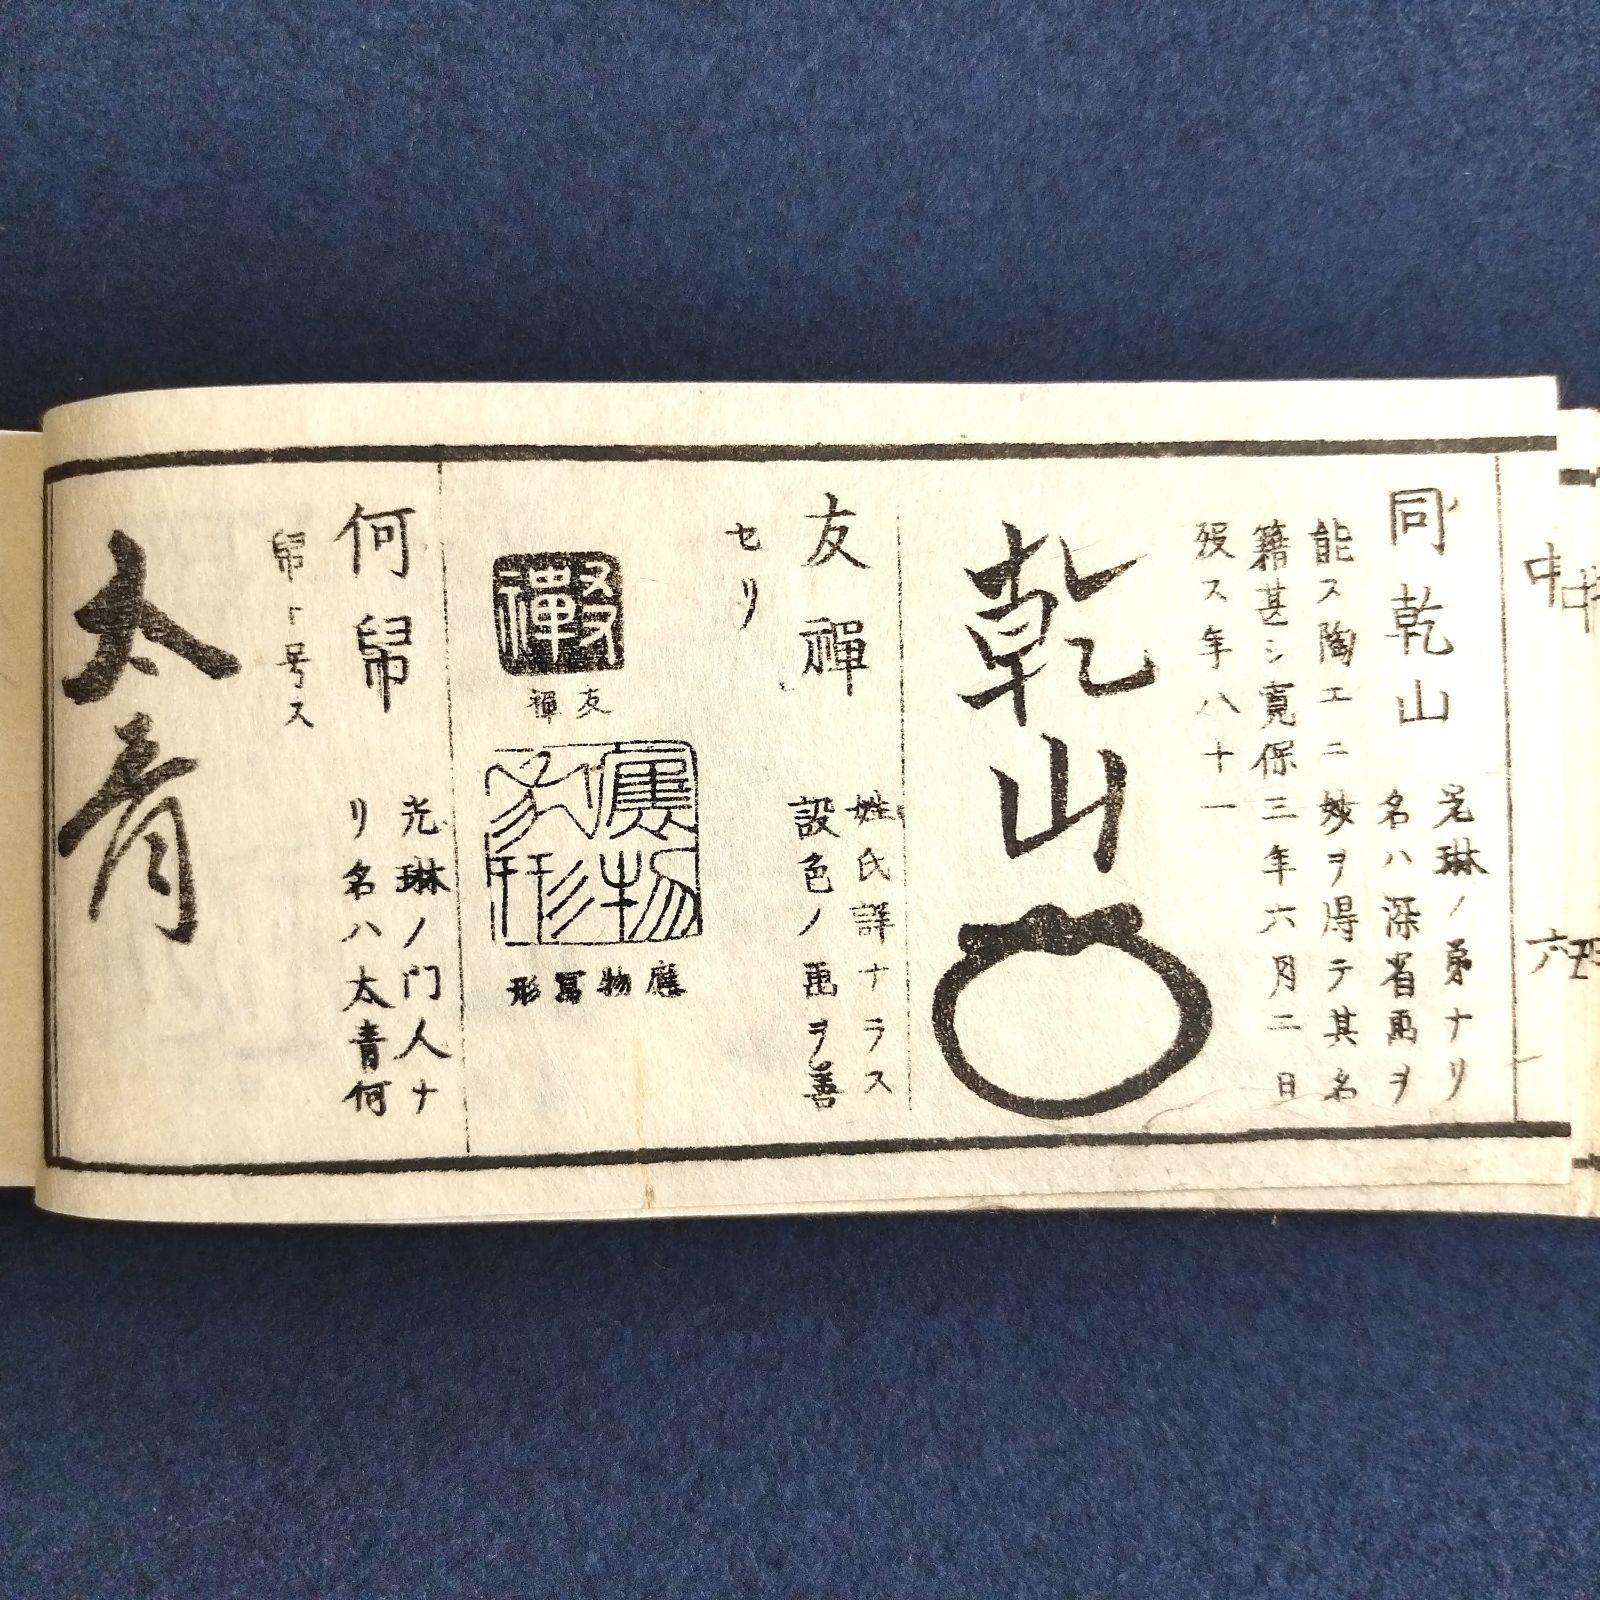 同乾山
光琳ノ弟ナリ
名ハ深省画ヲ
能ス陶工ニ妙ヲ得テ其名
籍甚シ寛保三年六月二日
歿ス年八十一
乾山
友禪
姓氏詳ナラス
設色ノ画ヲ善
セリ
友禪
應物写形
何帠
光琳ノ门人ナ
リ名ハ太青何
帠ト号ス
太青